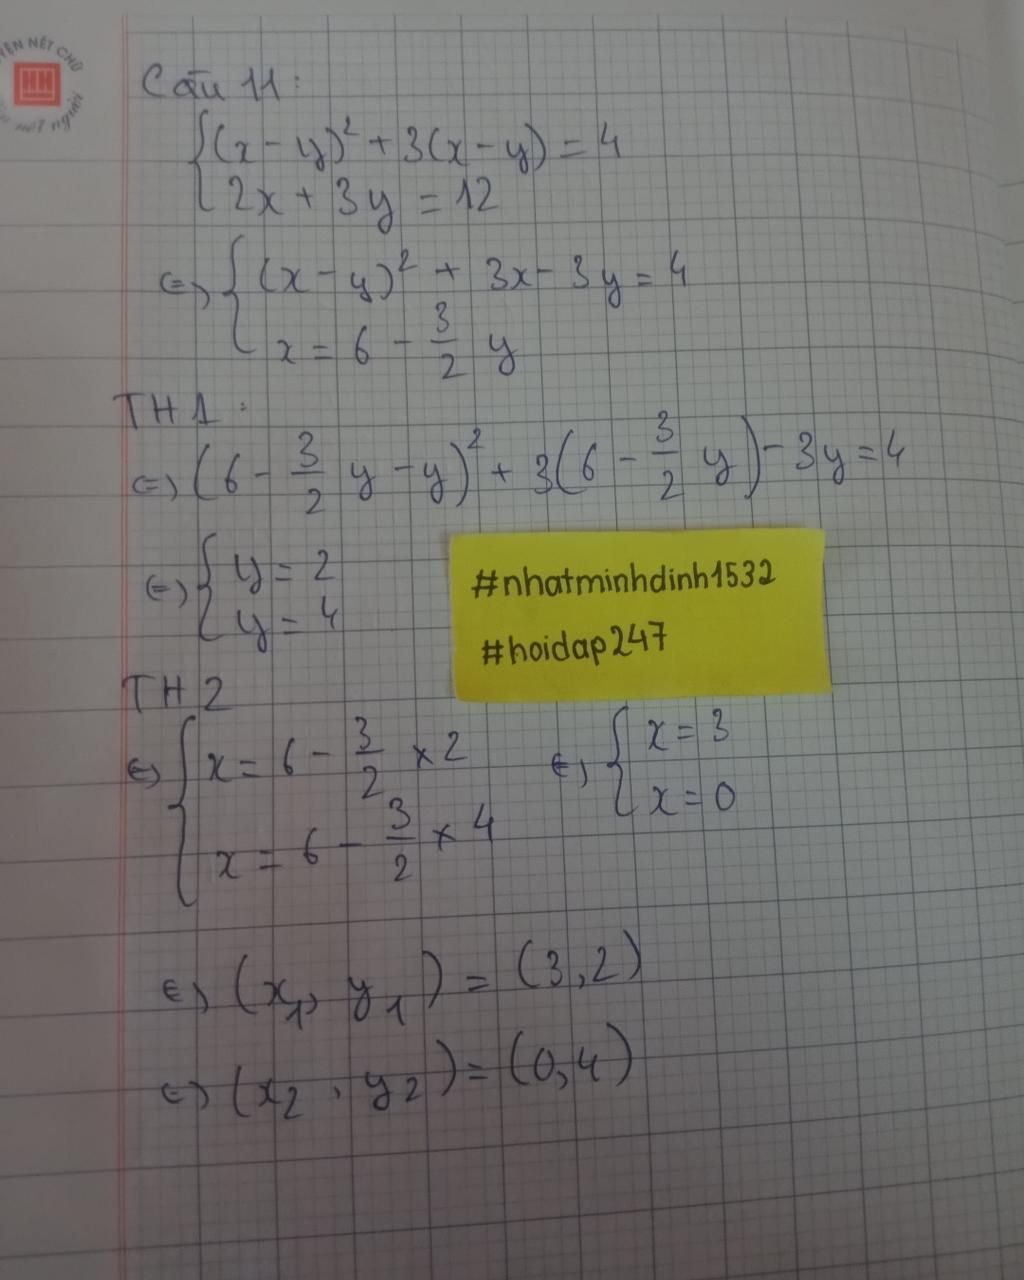 ỆN NÉT CHỮ
HH
nết người
Câu 11:
{(x - y)² + 3(x - y) = 4
{2x + 3y = 12
⇔ {(x - y)² + 3x - 3y = 4
{x = 6 - 3/2 y
TH1:
⇔ (6 - 3/2 y - y)² + 3(6 - 3/2 y) - 3y = 4
⇔ {y = 2
{y = 4
#nhatminhdinh1532
#hoidap247
TH2
⇔ {x = 6 - 3/2 × 2 ⇔ {x = 3
{x = 6 - 3/2 × 4 {x = 0
⇔ (x₁, y₁) = (3,2)
⇔ (x₂, y₂) = (0,4)